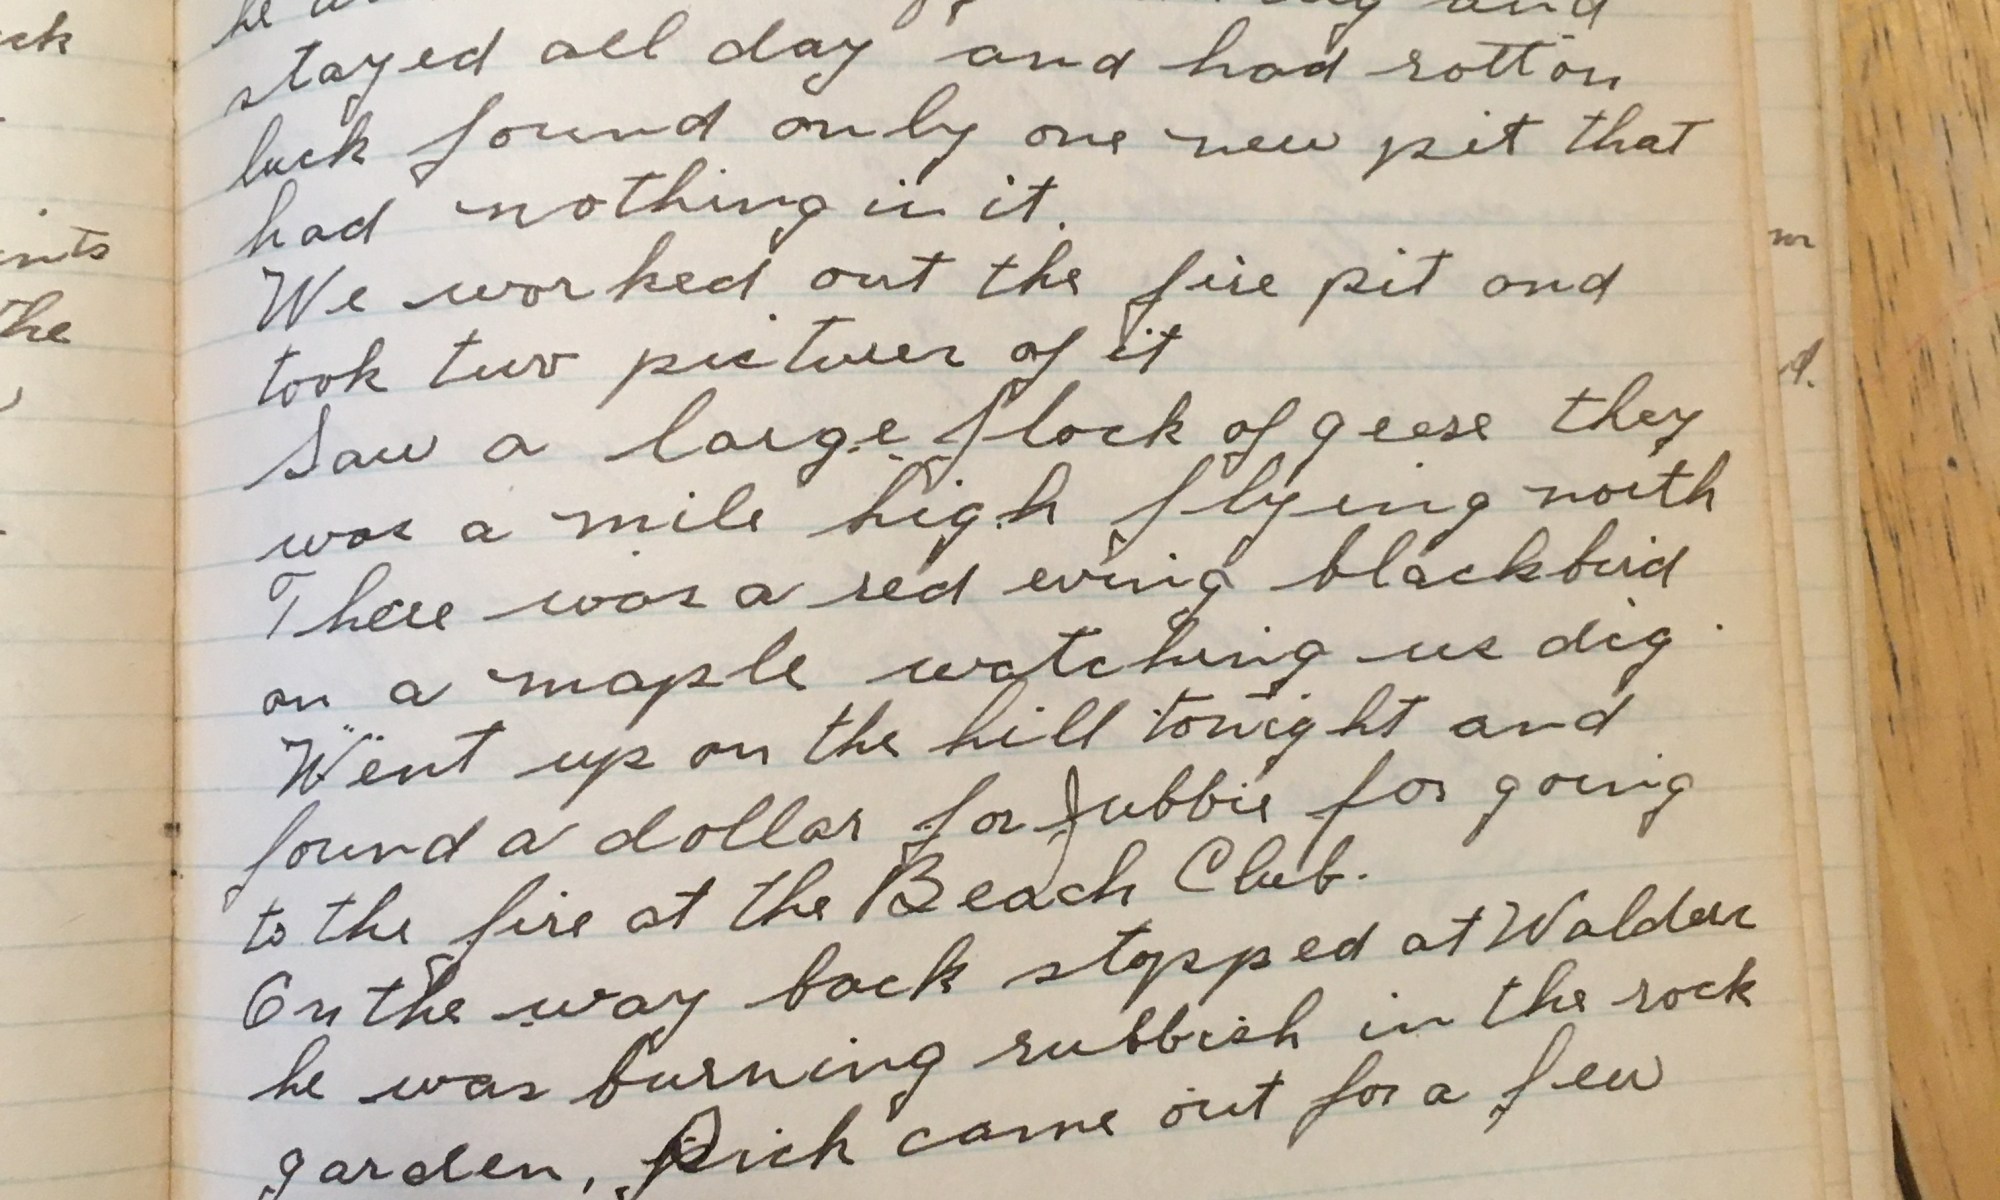 he
and
stayed all day and had rotton
luck found only one new pit that
had nothing in it.
We worked out the fire pit and
took two pictures of it
Saw a large flock of geese they
was a mile high flying north
There was a red wing blackbird
on a maple watching us dig.
Went up on the hill tonight and
found a dollar for Jubbie for going
to the fire at the Beach Club.
On the way back stopped at Waldens
he was burning rubbish in the rock
garden, Rich came out for a few
ck
ints
the